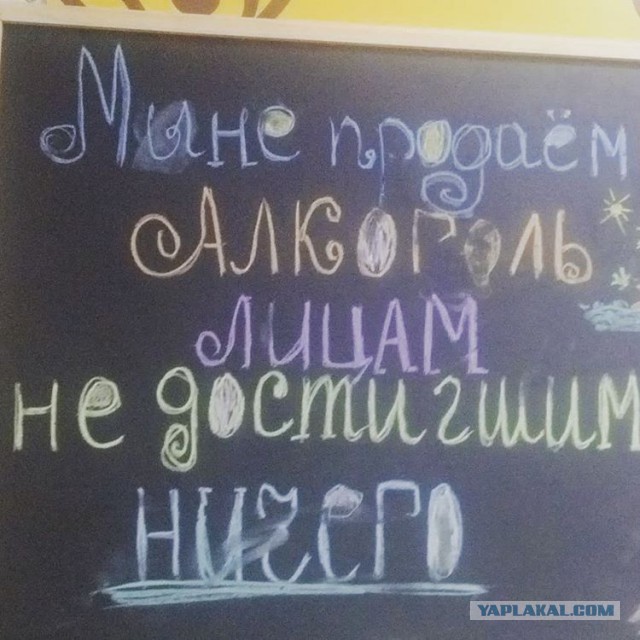 Мы не продаём
АЛКОГОЛЬ
ЛИЦАМ
не достигшим
НИЧЕГО
YAPLAKAL.COM